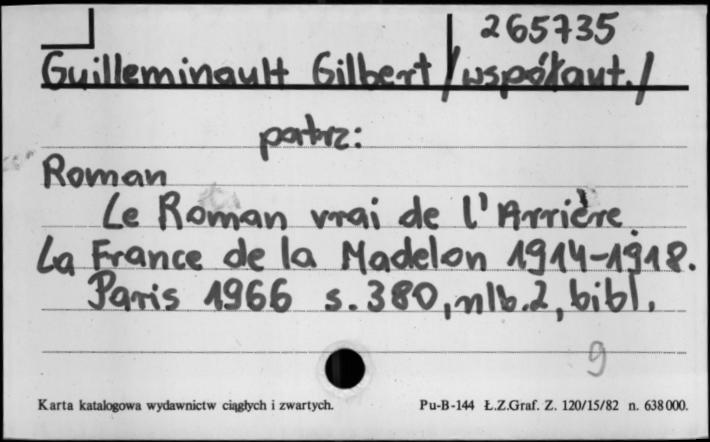 265735
Guilleminault Gilbert /współaut./
patrz:
Roman
Le Roman vrai de l'Arrière.
La France de la Madelon 1914-1918.
Paris 1966 s. 380, nlb. 2, bibl.
9
Karta katalogowa wydawnictw ciągłych i zwartych. Pu-B-144 Ł.Z.Graf. Z. 120/15/82 n. 638000.